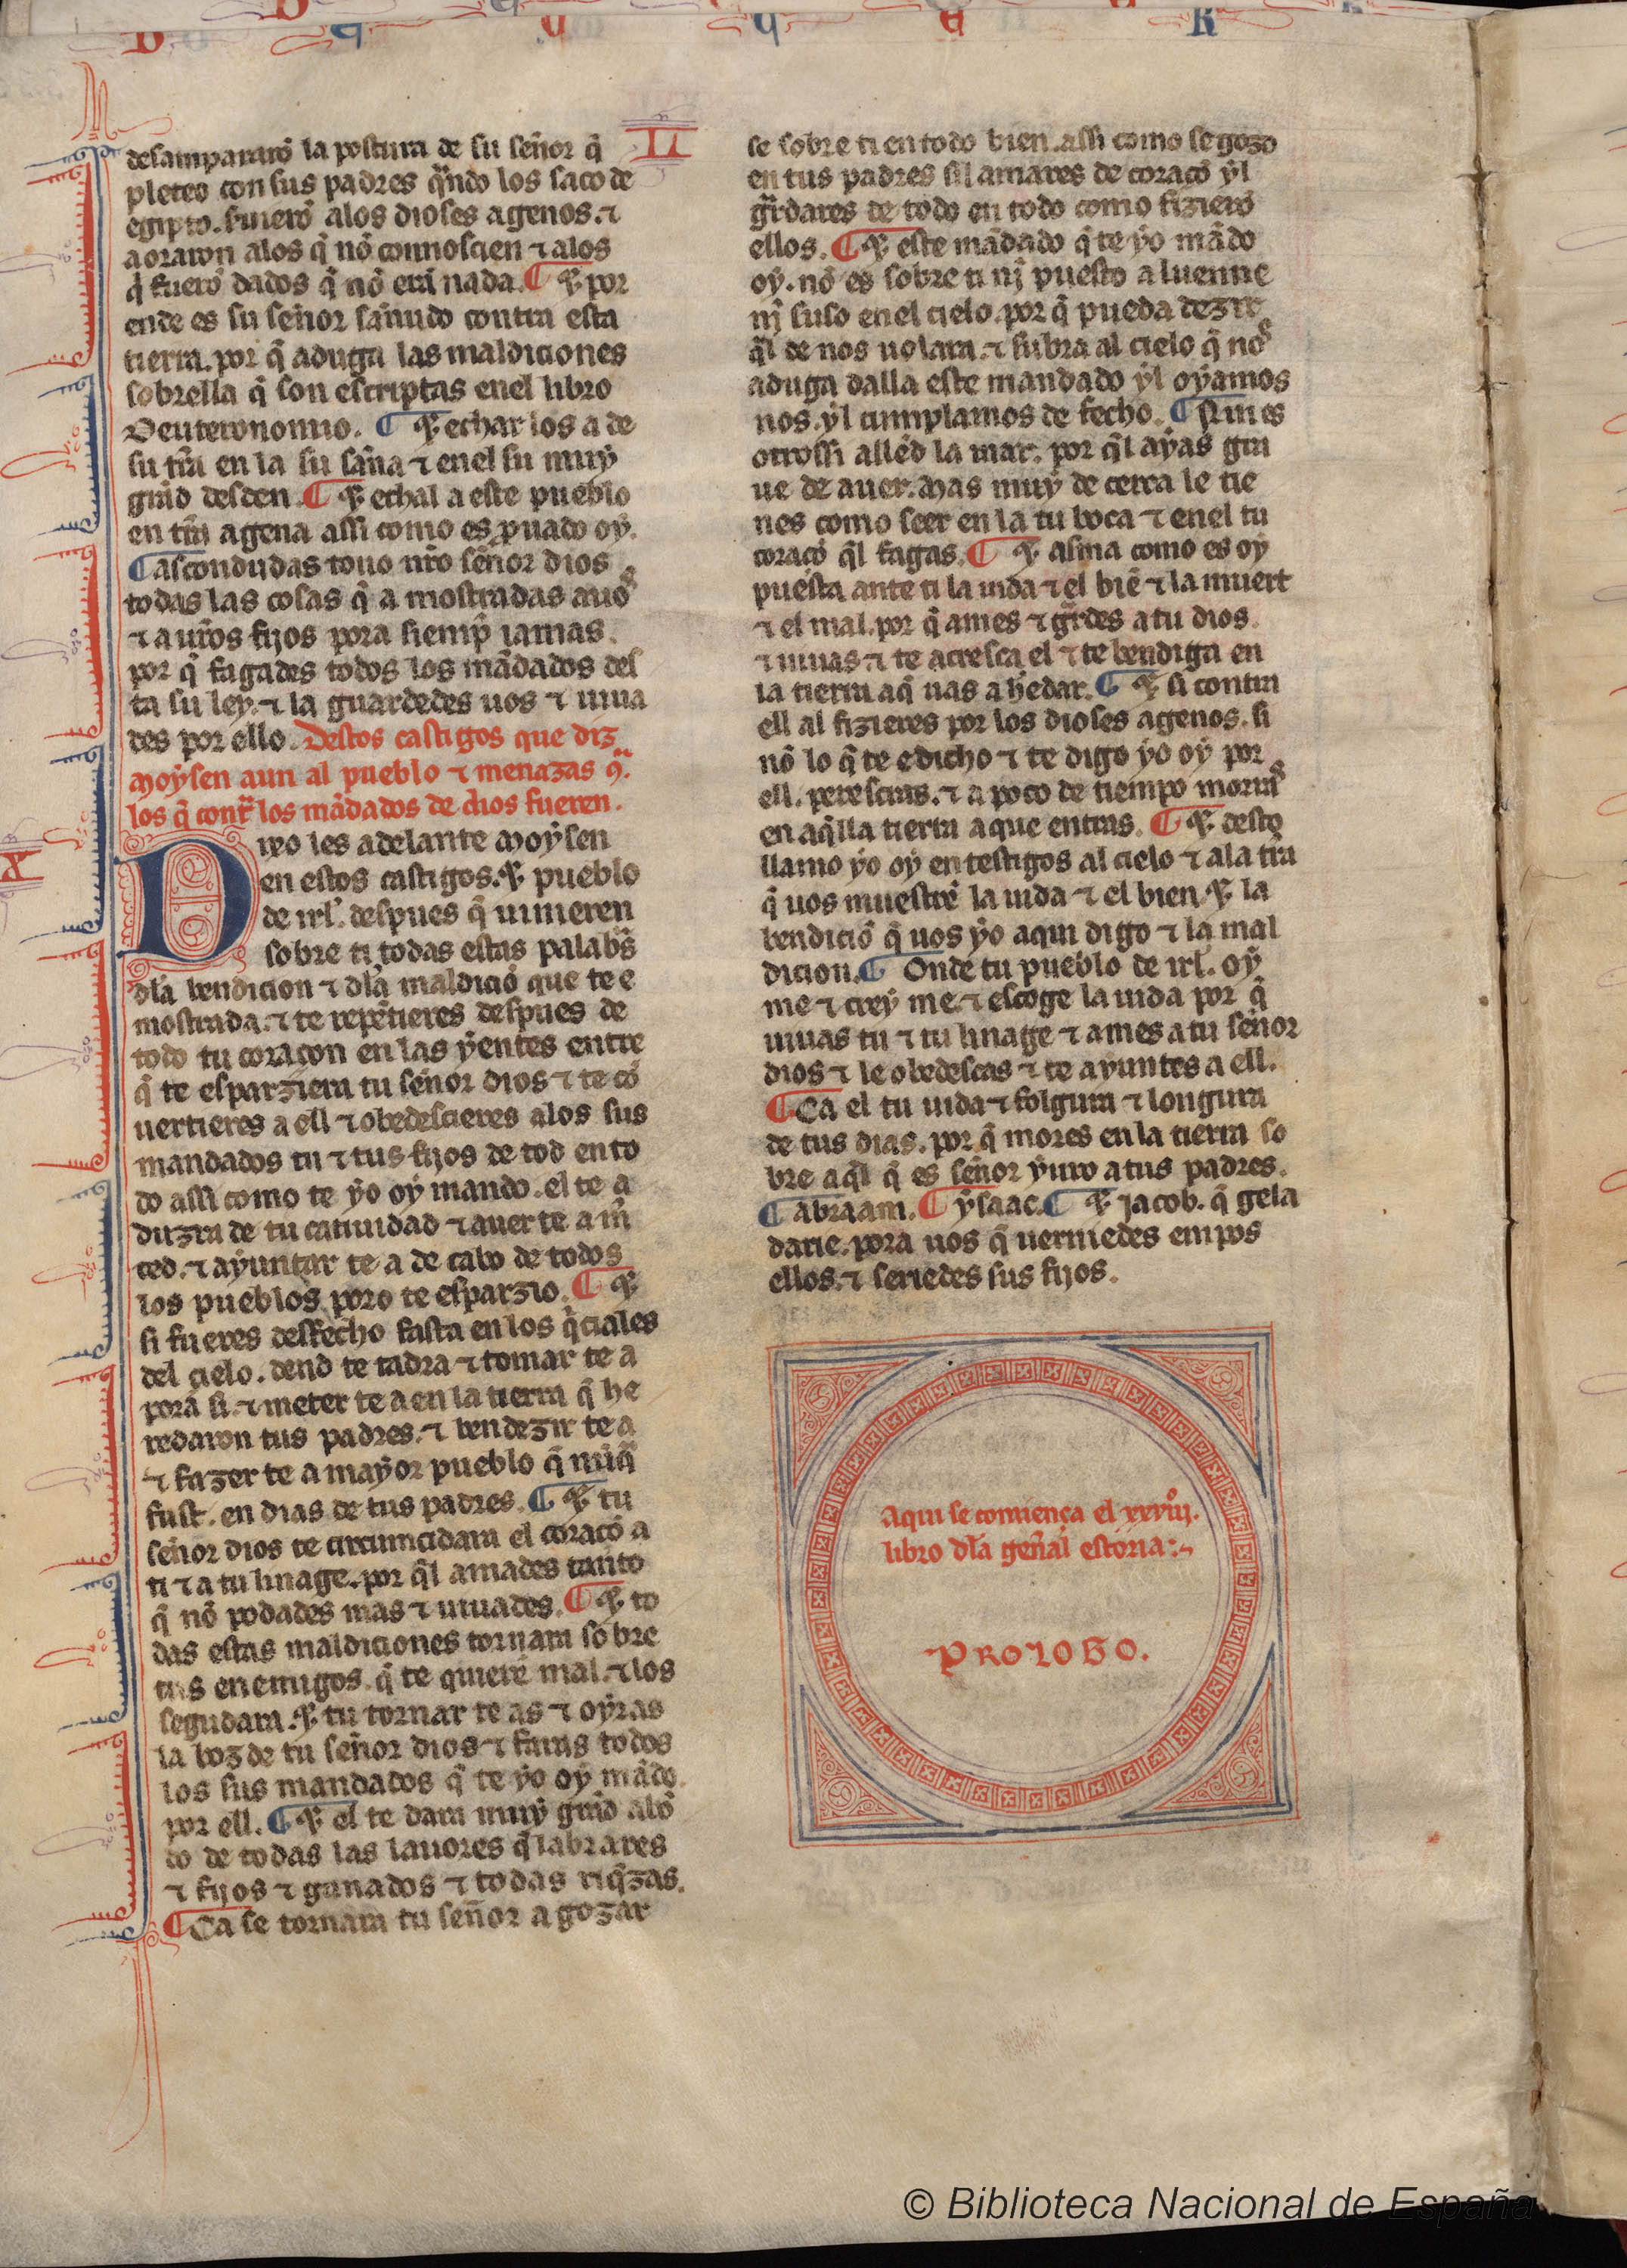 II
desampararõ la postura de su señor q̃
pleteo con sus padres qñdo los saco de
egipto. siruierõ alos dioses agenos. ⁊
aoraron alos q̃ nõ connoscien ⁊ alos
q̃ fuerõ dados q̃ nõ erã nada. ¶ ⁊ por
ende es su señor sañudo contra esta
tierra. por q̃ aduga las maldiciones
sobrella q̃ son escriptas enel libro
Deuteronomio. ¶ ⁊ echar los a de
su tr̃ra en la su saña ⁊ enel su muy
grãd desden. ¶ ⁊ echal a este pueblo
en tr̃ra agena assi como es prouado oy.
¶ ascondudas touo nr̃o señor dios
todas las cosas q̃ a mostradas auos
⁊ a ur̃os fijos pora siemp̃ iamas.
por q̃ fagades todos los mãdados des
ta su ley. ⁊ la guardedes uos ⁊ uiua
des por ello. Destos castigos que diz
moysen aun al pueblo ⁊ menazas 9̃.
los q̃ contr̃ los mãdados de dios fueren.
X
Dixo les adelante moysen
en estos castigos. ⁊ pueblo
de irl̃. despues q̃ uinieren
sobre ti todas estas palabr̃s
dl̃a bendicion ⁊ dl̃a maldiciõ que te e
mostrada. ⁊ te repẽtieres despues de
todo tu coraçon en las yentes entre
q̃ te esparziera tu señor dios ⁊ te cõ
uertieres a ell ⁊ obedescieres alos sus
mandados tu ⁊ tus fijos de tod en to
do assi como te yo oy mando. el te a
duzra de tu catiuidad ⁊ auer te a m̃
ced. ⁊ ayuntar te a de cabo de todos
los pueblos poro te esparzio. ¶ ⁊
si fueres desfecho fasta en los q̃ciales
del cielo. dend te tadra ⁊ tomar te a
pora si. ⁊ meter te a en la tierra q̃ he
redaron tus padres. ⁊ bendezir te a
⁊ fazer te a mayor pueblo q̃ nũq̃
fust. en dias de tus padres. ¶ ⁊ tu
señor dios te circumcidara el coraçõ a
ti ⁊ a tu linage. por q̃l amades tanto
q̃ nõ podades mas ⁊ uiuades. ¶ ⁊ to
das estas maldiciones tornara sobre
tus enemigos. q̃ te quierẽ mal. ⁊ los
segudara. ⁊ tu tornar te as ⁊ oyras
la boz de tu señor dios ⁊ faras todos
los sus mandados q̃ te yo oy mãdo.
por ell. ¶ ⁊ el te dara muy grãd abõ
do de todas las lauores q̃ labrares
⁊ fijos ⁊ ganados ⁊ todas riq̃zas.
¶ Ca se tornara tu señor a gozar
se sobre ti en todo bien. assi como se gozo
en tus padres sil amares de coraçõ yl
gr̃dares de todo en todo como fizierõ
ellos. ¶ ⁊ este mãdado q̃ te yo mãdo
oy. nõ es sobre ti nj̃ puesto a luenne
nj̃ suso enel cielo. por q̃ pueda dezir
q̃l de nos uolara. ⁊ subra al cielo q̃ nos
aduga dalla este mandado yl oyamos
nos. yl cumplamos de fecho. ¶ Nin es
otrossi allẽd la mar. por q̃l ayas gra
ue de auer. Mas muy de cerca le tie
nes como seer en la tu boca ⁊ enel tu
coraçõ q̃l fagas. ¶ ⁊ asma como es oy
puesta ante ti la uida ⁊ el biẽ ⁊ la muert
⁊ el mal. por q̃ ames ⁊ gr̃des a tu dios.
⁊ uiuas ⁊ te acresca el ⁊ te bendiga en
la tierra aq̃ uas a hedar. ¶ ⁊ si contra
ell al fizieres por los dioses agenos. si
nõ lo q̃ te e dicho ⁊ te digo yo oy por
ell. peresciras. ⁊ a poco de tiempo morras
en aq̃lla tierra a que entras. ¶ ⁊ desto
llamo yo oy en testigos al cielo ⁊ ala tr̃ra
q̃ uos muestrẽ la uida ⁊ el bien. ⁊ la
bendiciõ q̃ uos yo aqui digo ⁊ la mal
dicion. ¶ Onde tu pueblo de irl̃. oy
me ⁊ crey me. ⁊ escoge la uida por q̃
uiuas tu ⁊ tu linage ⁊ ames a tu señor
dios ⁊ le obedescas ⁊ te ayuntes a ell.
¶ Ca el tu uida ⁊ folgura ⁊ longura
de tus dias. por q̃ mores en la tierra so
bre aq̃l q̃ es señor yuro a tus padres.
¶ abraam. ¶ ysaac. ¶ ⁊ jacob. q̃ gela
darie. pora uos q̃ uerniedes empos
ellos. ⁊ seriedes sus fijos.
Aqui se comiença el xxviijº.
libro dl̃a geñal estoria:~
PROLOGO.
© Biblioteca Nacional de España